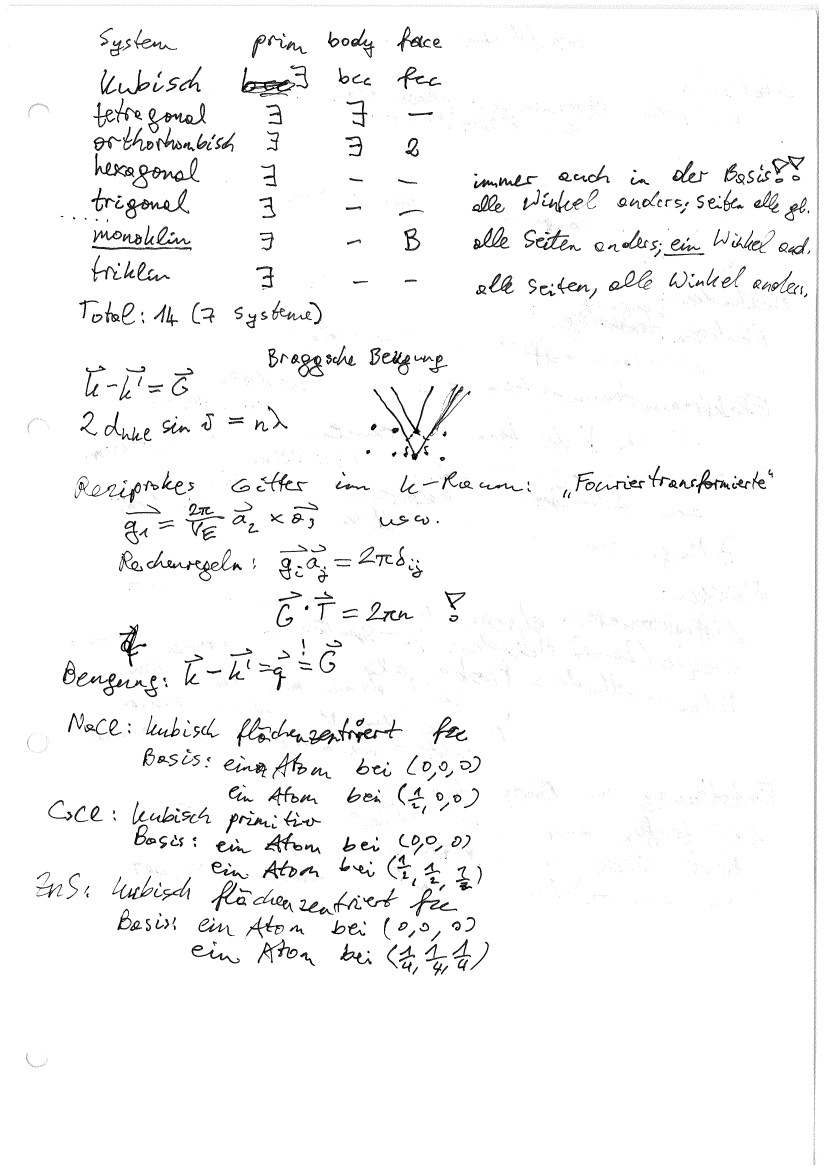 System prim body face
kubisch ∃ bcc fcc
tetragonal ∃ ∃ —
orthorhombisch ∃ ∃ 2
hexagonal ∃ – – immer auch in der Basis!!
trigonal ∃ – – alle Winkel anders; Seiten alle gl.
monoklin ∃ - B alle Seiten anders; ein Winkel and.
triklin ∃ – – alle Seiten, alle Winkel anders.
Total: 14 (7 Systeme)
Braggsche Beugung
k⃗ - k⃗' = G⃗
2 d_hkl sin ϑ = nλ
δ δ
Reziprokes Gitter im k-Raum: „Fouriertransformierte"
g⃗₁ = 2π/V_E a⃗₂ × a⃗₃ usw.
Rechenregeln: g⃗ᵢ a⃗ⱼ = 2πδᵢⱼ
G⃗ · T⃗ = 2πn !
Beugung: k⃗ - k⃗' = q⃗ =! G⃗
NaCl: kubisch flächenzentriert fcc
Basis: ein Atom bei (0,0,0)
ein Atom bei (1/2,0,0)
CsCl: kubisch primitiv
Basis: ein Atom bei (0,0,0)
ein Atom bei (1/2, 1/2, 1/2)
ZnS: kubisch flächenzentriert fcc
Basis: ein Atom bei (0,0,0)
ein Atom bei (1/4, 1/4, 1/4)